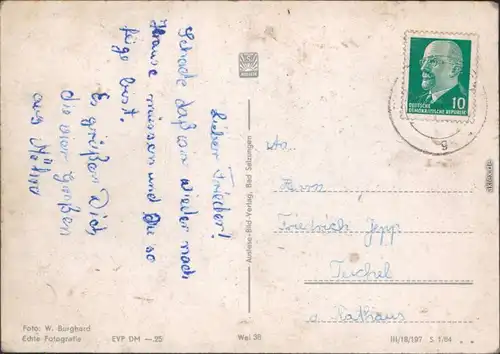 Lieber Frieder!
Schade daß wir wieder nach
Hause müssen und Du so
fort bist.
Es grüßen Dich
die vier großen
aus
An
Herrn
Friedrich Jepp
Teichel
a. Rathaus
DEUTSCHE
DEMOKRATISCHE REPUBLIK
10
Auslese-Bild-Verlag, Bad Salzungen
Foto: W. Burghard
Echte Fotografie
EVP DM —.25
Wei 38
III/18/197 S 1/64